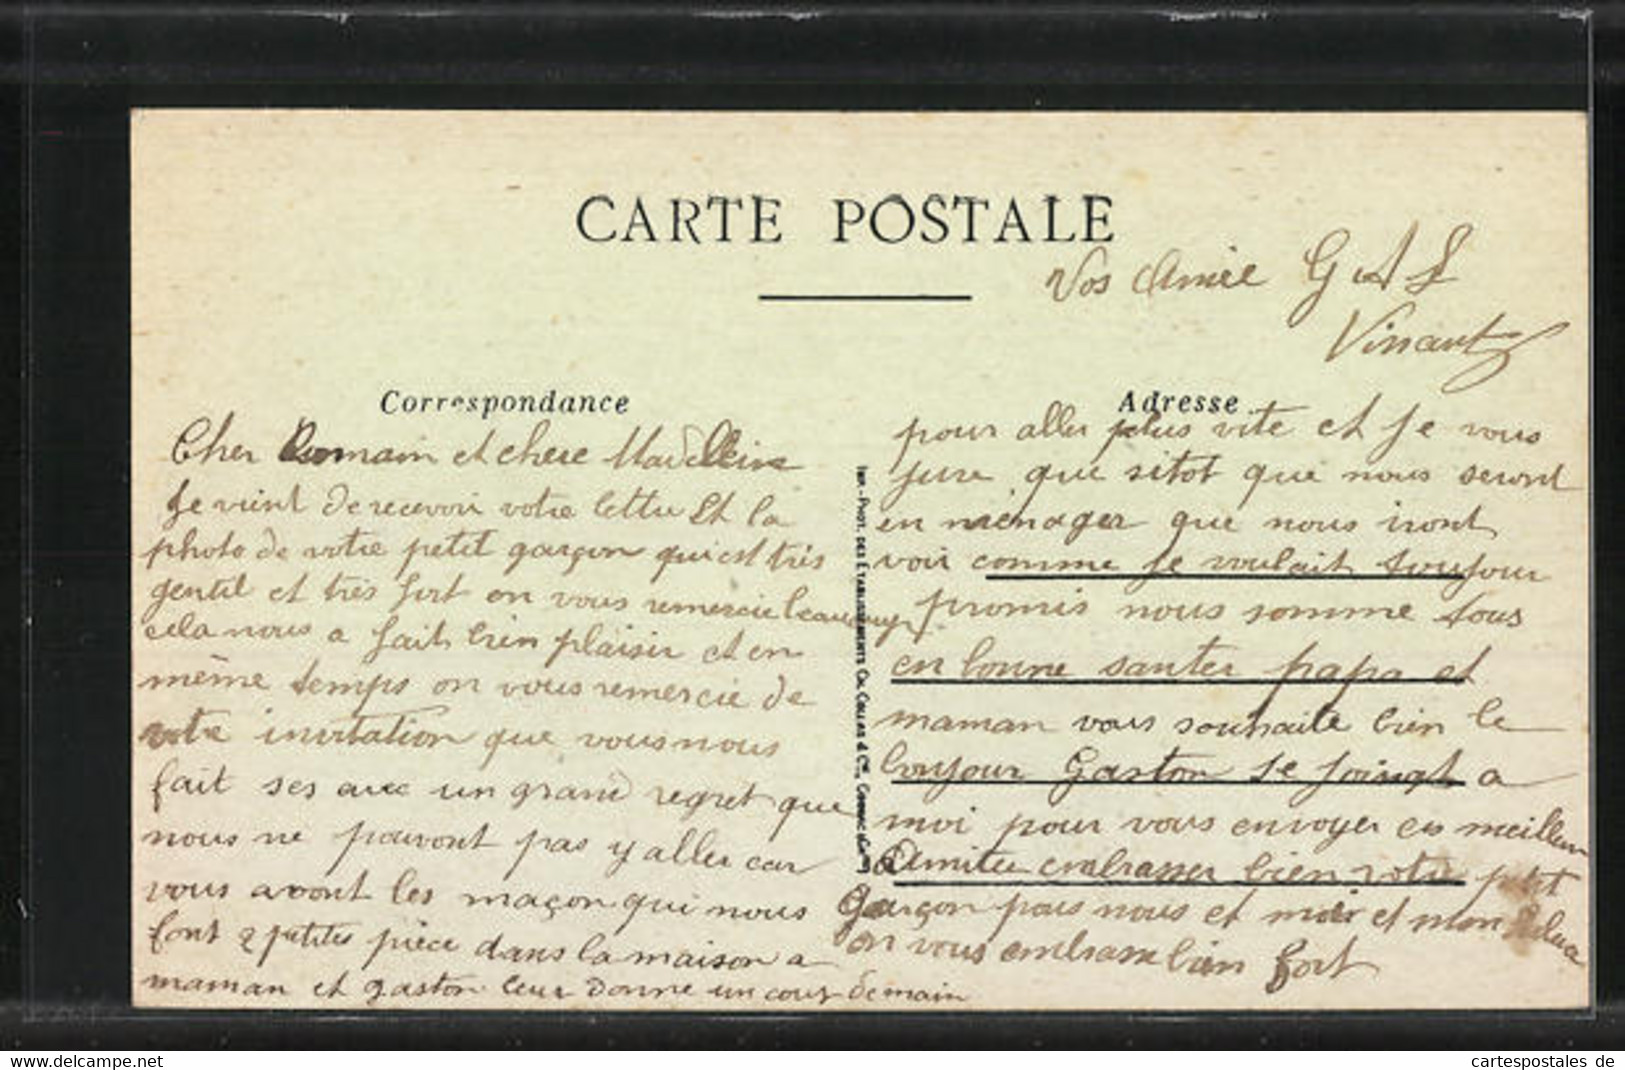 CARTE POSTALE
Vos Amie G A L
Vinant
Correspondance
Adresse
Cher Romain et chere Madelleine
Je vient de recevoir votre lettre Et la
photo de votre petit garçon qui est très
gentil et très fort on vous remercie beaucoup
cela nous a fait bien plaisir et en
même temps on vous remercie de
votre invitation que vous nous
fait ses avec un grand regret que
nous ne pouvont pas y aller car
vous avont les maçon qui nous
font 2 petites pièce dans la maison a
maman et gaston leur donne un cour demain
pour aller plus vite et je vous
jure que sitot que nous seront
en ménager que nous iront
voir comme je voulait toujour
promis nous somme tous
en bonne santer papa et
maman vous souhaite bien le
bonjour Gaston se joingt a
moi pour vous envoyer ces meilleur
Amitie embrasser bien votre petit
Garçon pour nous et moi et mon
on vous embrasse bien fort
IMP.-PHOT. DES ÉTABLISSEMENTS CH. COLLAS & Cie, COGNAC
www.delcampe.net
cartespostales de